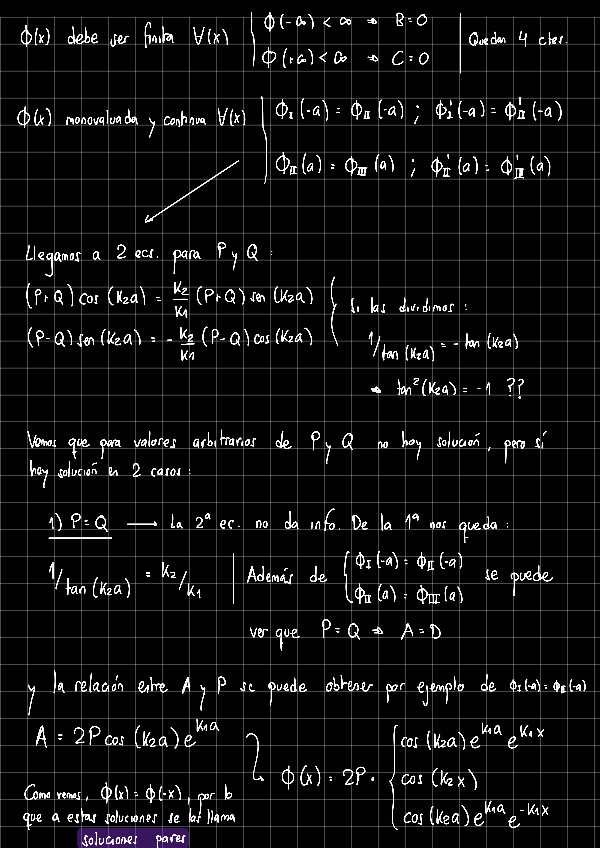 ϕ(x) debe ser finita ∀(x) | ϕ(-∞) < ∞ ⇒ B=0 | Quedan 4 ctes.
ϕ(+∞) < ∞ ⇒ C=0
ϕ(x) monovaluada y continua ∀(x) | ϕ_I(-a) = ϕ_II(-a) ; ϕ'_I(-a) = ϕ'_II(-a)
ϕ_II(a) = ϕ_III(a) ; ϕ'_II(a) = ϕ'_III(a)
Llegamos a 2 ecs. para P y Q :
(P+Q) cos (K₂a) = K₂/K₁ (P+Q) sen (K₂a)
(P-Q) sen (K₂a) = - K₂/K₁ (P-Q) cos (K₂a)
Si las dividimos :
1/tan(K₂a) = - tan (K₂a)
⇒ tan²(K₂a) = -1 ??
Vemos que para valores arbitrarios de P y Q no hay solución, pero sí
hay solución en 2 casos :
1) P=Q → La 2ª ec. no da info. De la 1ª nos queda :
1/tan(K₂a) = K₂/K₁ | Además de { ϕ_I(-a) = ϕ_II(-a) se puede
ϕ_II(a) = ϕ_III(a)
ver que P=Q ⇒ A=D
y la relación entre A y P se puede obtener por ejemplo de ϕ_I(-a)=ϕ_II(-a)
A = 2P cos (K₂a) e^{K₁a}
ϕ(x) = 2P · { cos (K₂a) e^{K₁a} e^{K₁x}
cos (K₂x)
cos (K₂a) e^{K₁a} e^{-K₁x}
Como vemos, ϕ(x) = ϕ(-x), por lo
que a estas soluciones se las llama
soluciones pares